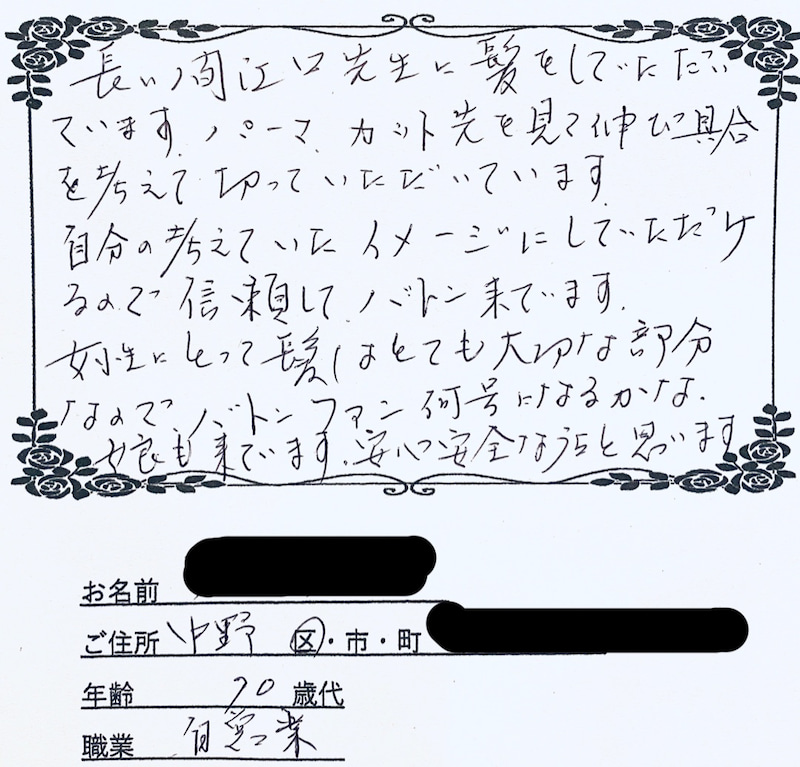 長い間江口先生に髪をしていただい
ています。パーマ、カット先を見て伸び具合
を考えて切っていただいています。
自分の考えていたイメージにしていただけ
るので信頼して、バトン来ています。
女性にとって髪はとても大切な部分
なので、バトンファン何号になるかな、
娘も来ています。安心安全なうちと思います
お名前
ご住所 中野 区・市・町
年齢 70 歳代
職業 自営業